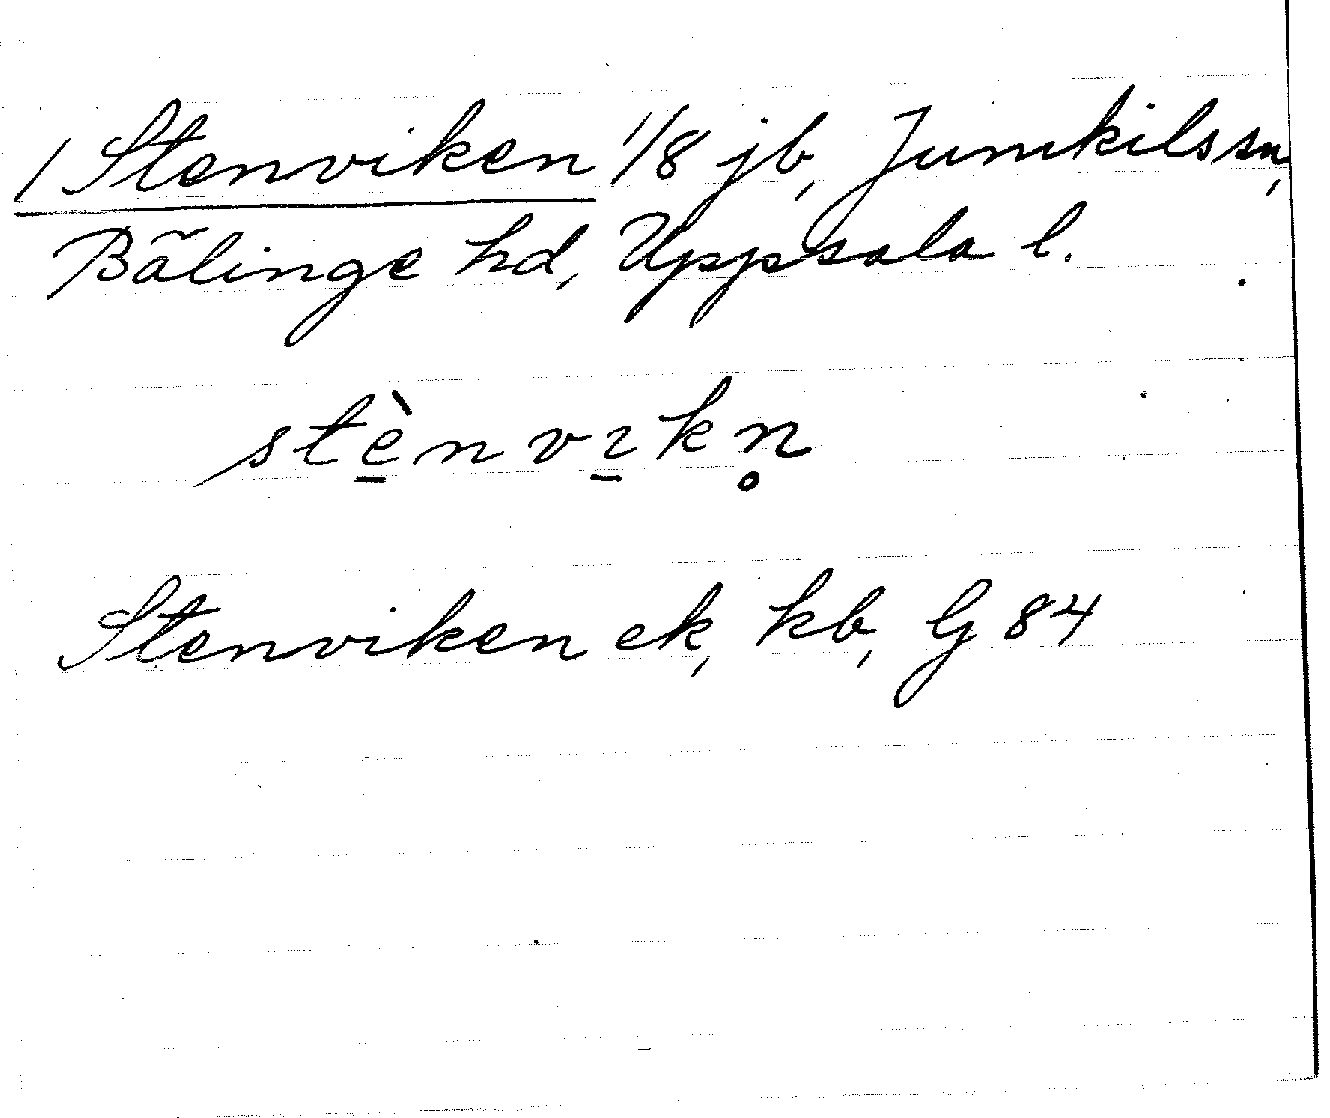 1 Stenviken 1/8 jb, Jumkils sn,
Bälinge hd, Uppsala l.
stè̠nvı̠kn̥
Stenviken ek, kb, G 84